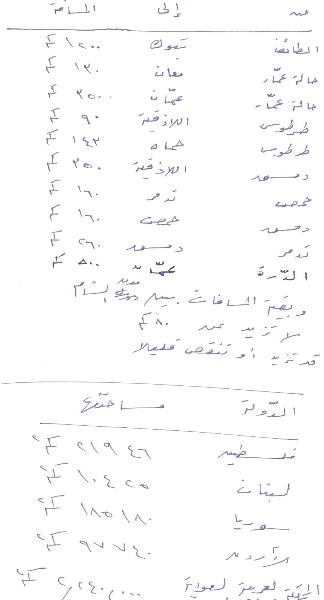 من إلى المسافة
الطائف تبوك ١٢٠٠ كم
حالة عمّار معان ١٣٠ كم
حالة عمّار عمّان ٣٥٠ كم
طرطوس اللاذقية ٩٠ كم
طرطوس حماه ١٤٣ كم
دمشق اللاذقية ٣٥٠ كم
حمص تدمر ١٦٠ كم
دمشق حمص ١٦٠ كم
تدمر دمشق ٢٦٠ كم
عمّان ٥٠٠ كم
وبقية المسافات بين مدن الشام
لا تزيد عن ٨٠ كم
قد تزيد أو تنقص قليلا
الدّولة مساحتها
فلسطين ٢١٩٤٦ كم٢
لبنان ١٠٤٢٥ كم٢
سوريا ١٨٥١٨٠ كم٢
الأردن ٩٧٧٤٠ كم٢
المملكة العربية السعودية ٢,٢٤٠,٠٠٠ كم٢